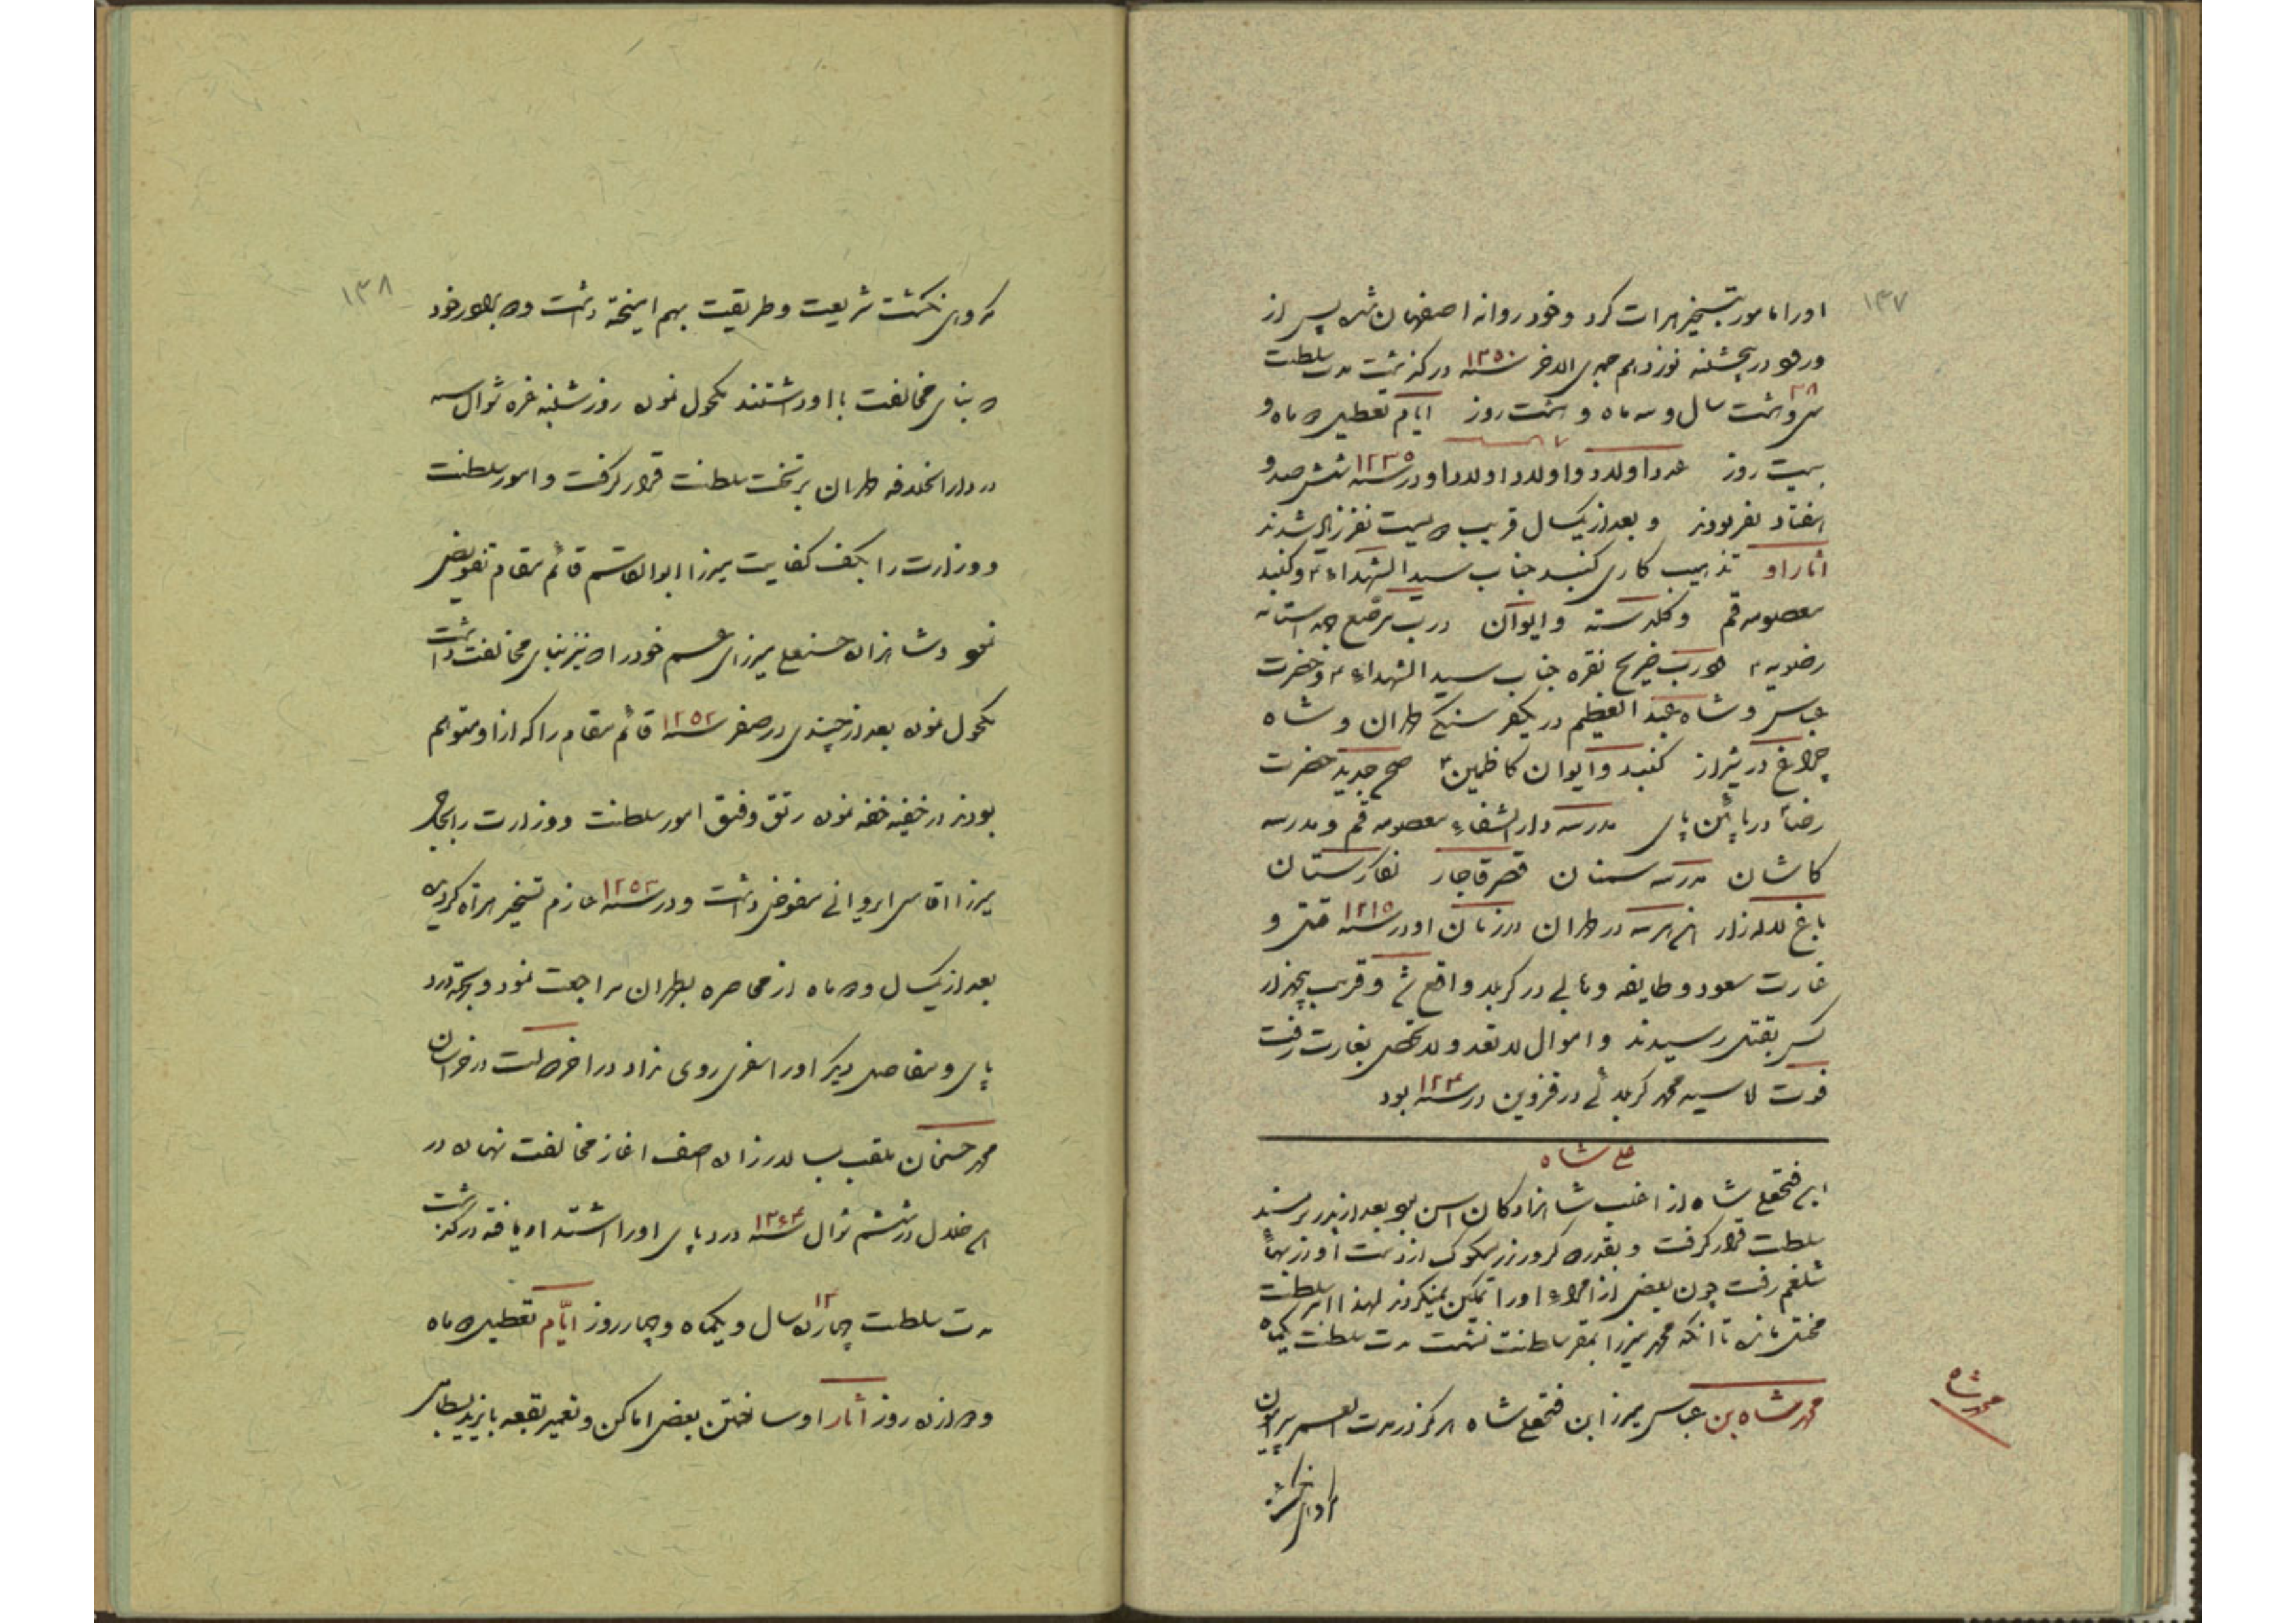 ۱۳۷
اورا مامور بتسخیر هرات کرد و خود روانه اصفهان شد پس از
ورود در پنجشنبه نوزدهم جمدی الاخر سنه ۱۲۵۰ درگذشت مدت سلطنت
سی و هشت ۳۸ سال و سه ماه و هشت روز ایام تعطیل ماه و
بیست روز عدد اولاد و اولاد اولاد او در سنه ۱۲۳۵ ششصد و
هفتاد نفر بودند و بعد از یکسال قریب بیست نفر زیاد شدند
آثار او تذهیب کاری گنبد جناب سید الشهداء و گنبد
معصومه قم و گلدسته و ایوان درب مرصع جهة استانه
رضویه درب ضریح نقره جناب سید الشهداء و حضرت
عباس و شاه عبد العظیم در یکفرسنگی طهران و شاه
چراغ در شیراز گنبد و ایوان کاظمین صحن جدید حضرت
رضا در پائین پای مدرسه دار الشفاء معصومه قم و مدرسه
کاشان مدرسه سمنان قصر قاجار نگارستان
باغ لاله زار هر سه در طهران در زمان او در سنه ۱۲۱۵ قتل و
غارت سعود و طایفه وهابی در کربلا واقع شد و قریب پنجهزار
کس بقتل رسیدند و اموال لاتعد و لاتحصی بغارت رفت
فوت سید محمد کربلائی در قزوین در سنه بود
علی شاه
ابن فتحعلی شاه از اغلب شاهزادگان اسن بود بعد از پدر بر مسند
سلطنت قرار گرفت و بقدر کرور زر مسکوک از دست او در بهای
شلغم رفت چون بعضی از امراء او را تمکین نمیکردند لهذا امر سلطنت
مختل ماند تا انکه محمد میرزا بمقر سلطنت نشست مدت سلطنت یکماه
محمد شاه
محمد شاه بن عباس میرزا ابن فتحعلی شاه هرگز در مدت العمر پیرامون
۱۳۸
نگشت شریعت و طریقت بهم امیخته داشت برادر خود
بنای مخالفت با او داشتند مکحول نموده روز شنبه غره شوال سنه
در دار الخلافه طهران بر تخت سلطنت قرار گرفت و امور سلطنت
و وزارت را بکف کفایت میرزا ابوالقاسم قائم مقام تفویض
نمود و شاهزاده حسنعلی میرزای عم خود را نیز بنای مخالفت داشت
مکحول نموده بعد از چندی در صفر سنه ۱۲۵۲ قائم مقام را که از او متوهم
بودند در خفیه خفه نموده رتق و فتق امور سلطنت و وزارت را بحاجی
میرزا اقاسی ایروانی مفوض داشت و در سنه ۱۲۵۳ عازم تسخیر هراة گردید
بعد از یکسال و ماه از محاصره بطهران مراجعت نمود و بجهة درد
پای و مفاصل دیگر او را سفری روی نداد در اخر دولت در خراسان
محمد حسنخان ملقب بسالار زاده اصف اغاز مخالفت نهاده در
خلال در ششم شوال سنه ۱۲۶۴ درد پای او را اشتداد یافته درگذشت
مدت سلطنت چهارده ۱۴ سال و یکماه و چهار روز ایّام تعطیل ماه
روز آثار او ساختن بعضی اماکن و تعمیر بقعه بایزید بسطامی